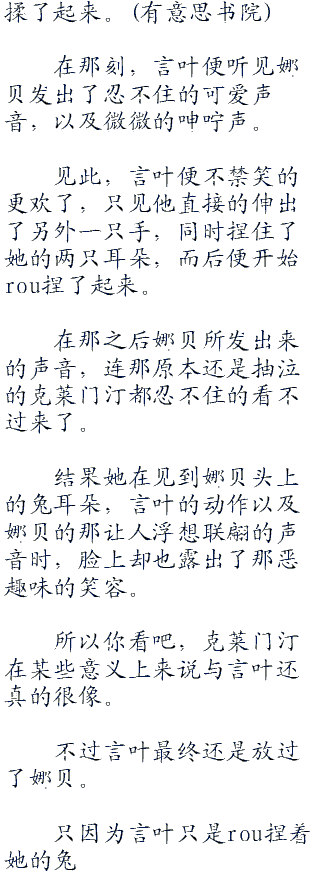 揉了起来。(有意思书院)
在那刻，言叶便听见娜
贝发出了忍不住的可爱声
音，以及微微的呻咛声。
见此，言叶便不禁笑的
更欢了，只见他直接的伸出
了另外一只手，同时捏住了
她的两只耳朵，而后便开始
rou捏了起来。
在那之后娜贝所发出来
的声音，连那原本还是抽泣
的克莱门汀都忍不住的看不
过来了。
结果她在见到娜贝头上
的兔耳朵，言叶的动作以及
娜贝的那让人浮想联翩的声
音时，脸上却也露出了那恶
趣味的笑容。
所以你看吧，克莱门汀
在某些意义上来说与言叶还
真的很像。
不过言叶最终还是放过
了娜贝。
只因为言叶只是rou捏着
她的兔